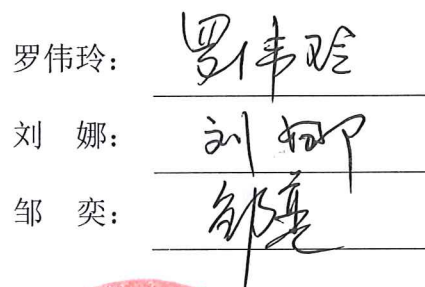 罗伟玲：罗伟玲
刘　娜：刘娜
邹　奕：邹奕